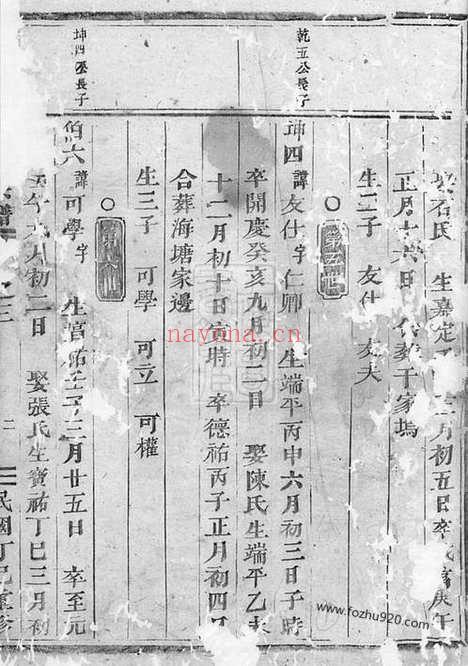 乾五公長子
坤四公長子
娶石氏 生嘉定 二月初五日卒 庚午
正月十六日 合葬于家塢
生二子 友仕 友夫
第五世
坤四 諱友仕 字仁卿 生端平丙申六月初三日子時
卒開慶癸亥九月初二日 娶陳氏生端平乙未
十二月初十日寅時 卒德祐丙子正月初四日
合葬海塘家邊
生三子 可學 可立 可權
第六世
伯六 諱可學 字 生寳祐壬子三月廿五日 卒至元
午九月初二日 娶張氏生寳祐丁巳三月初
二 民國丁巳重修
nayona.cn
www.fozhu920.com